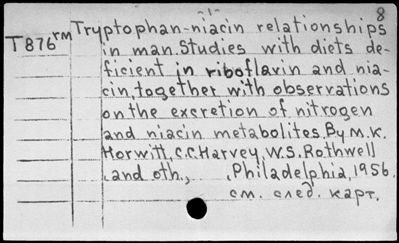 -1-
8
T876rm Tryptophan-niacin relationships
in man. Studies with diets de-
ficient in riboflavin and nia-
cin, together with observations
on the excretion of nitrogen
and niacin metabolites. By M.K.
Horwitt, C.C. Harvey, W.S. Rothwell
and oth., Philadelphia, 1956.
см. след. карт.